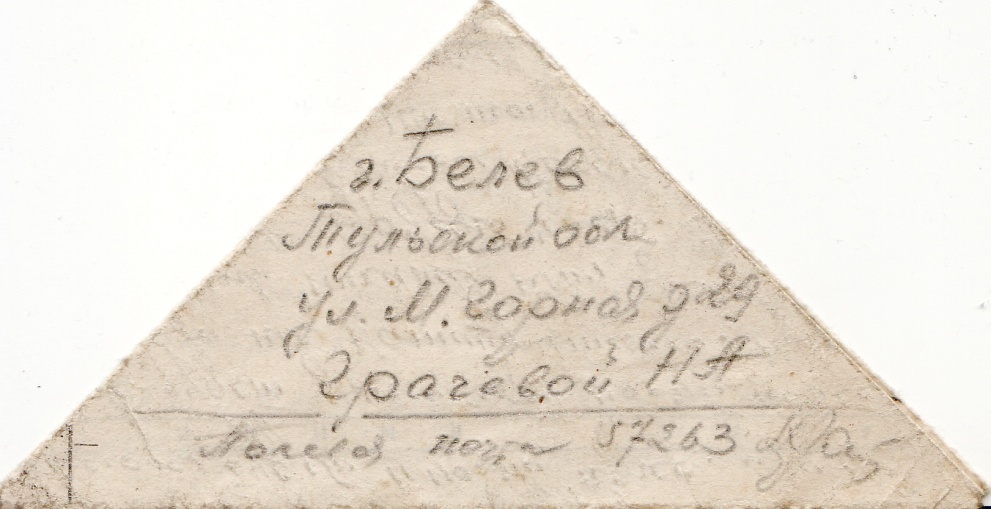 г. Белев
Тульской обл
ул. М. Горная д 29
Грачевой НА
Полевая почта 57263